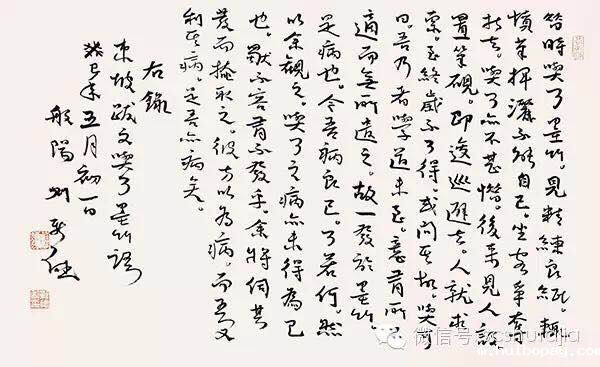 昔時與可墨竹。見精縑良紙。輒
憤筆揮灑不能自已。坐客争奪
持去。與可亦不甚惜。後來見人設
置筆硯。即逡巡避去。人就求
索。至終歲不可得。或問其故。與可
曰。吾乃者學道未至。意有所不
適而無所遣之。故一發於墨竹。
是病也。今吾病良已。可若何。然
以余觀之。與可之病亦未得為已
也。獨不容有不發乎。余將伺其
發而掩取之。彼方以為病。而吾又
利其病。是吾亦病矣。
右錄
東坡跋文與可墨竹語
癸巳年五月初一日
般陽
微信号: zcshufajia